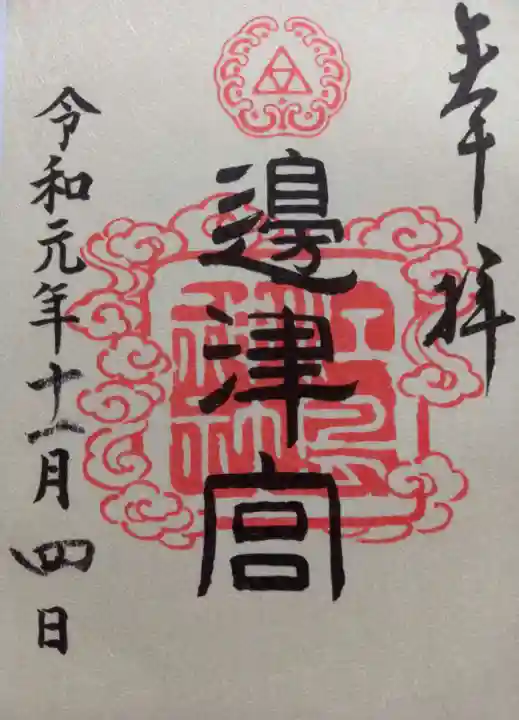 奉拝
邊津宮
令和元年十一月四日